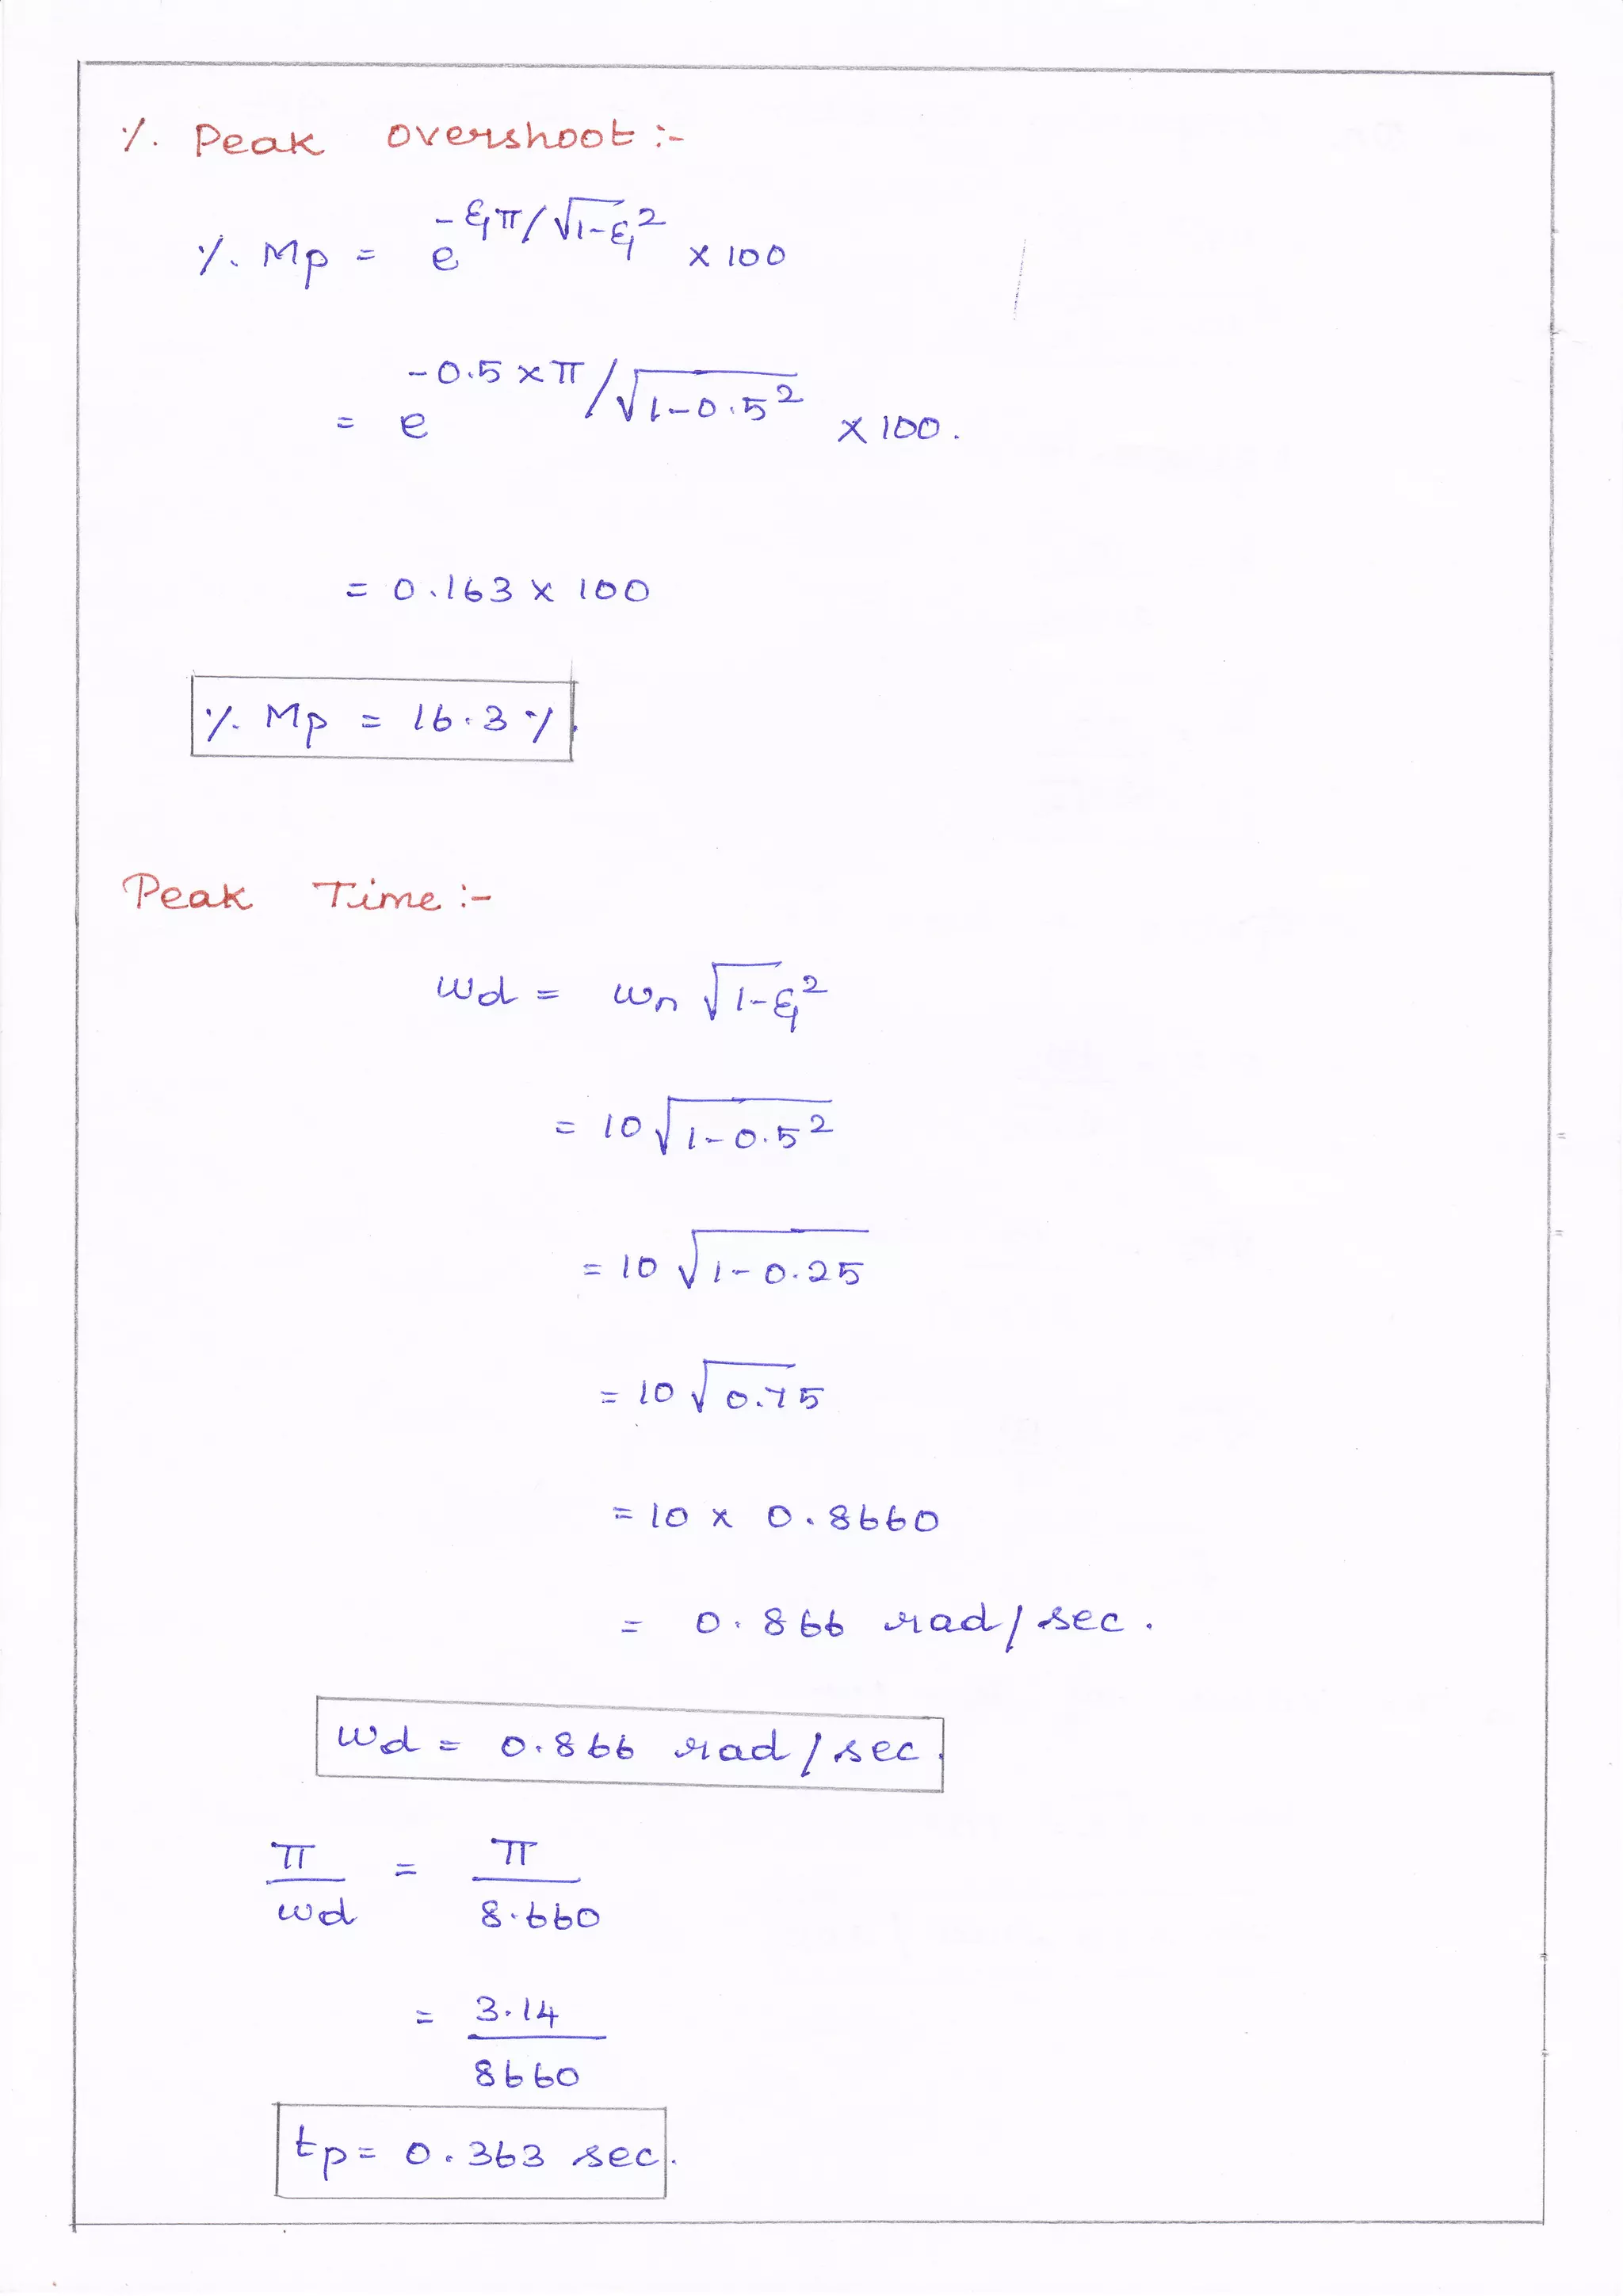 % Peak Overshoot :-
% Mp = e^{-ξπ/√1-ξ²} × 100
= e^{-0.5 × π/√1-0.5²} × 100.
= 0.163 × 100
% Mp = 16.3 %.
Peak Time :-
ωd = ωn √1-ξ²
= 10 √1-0.5²
= 10 √1-0.25
= 10 √0.75
= 10 × 0.8660
= 0.866 rad/sec.
ωd = 0.866 rad/sec.
π/ωd = π/8.660
= 3.14/8660
tp = 0.363 sec.